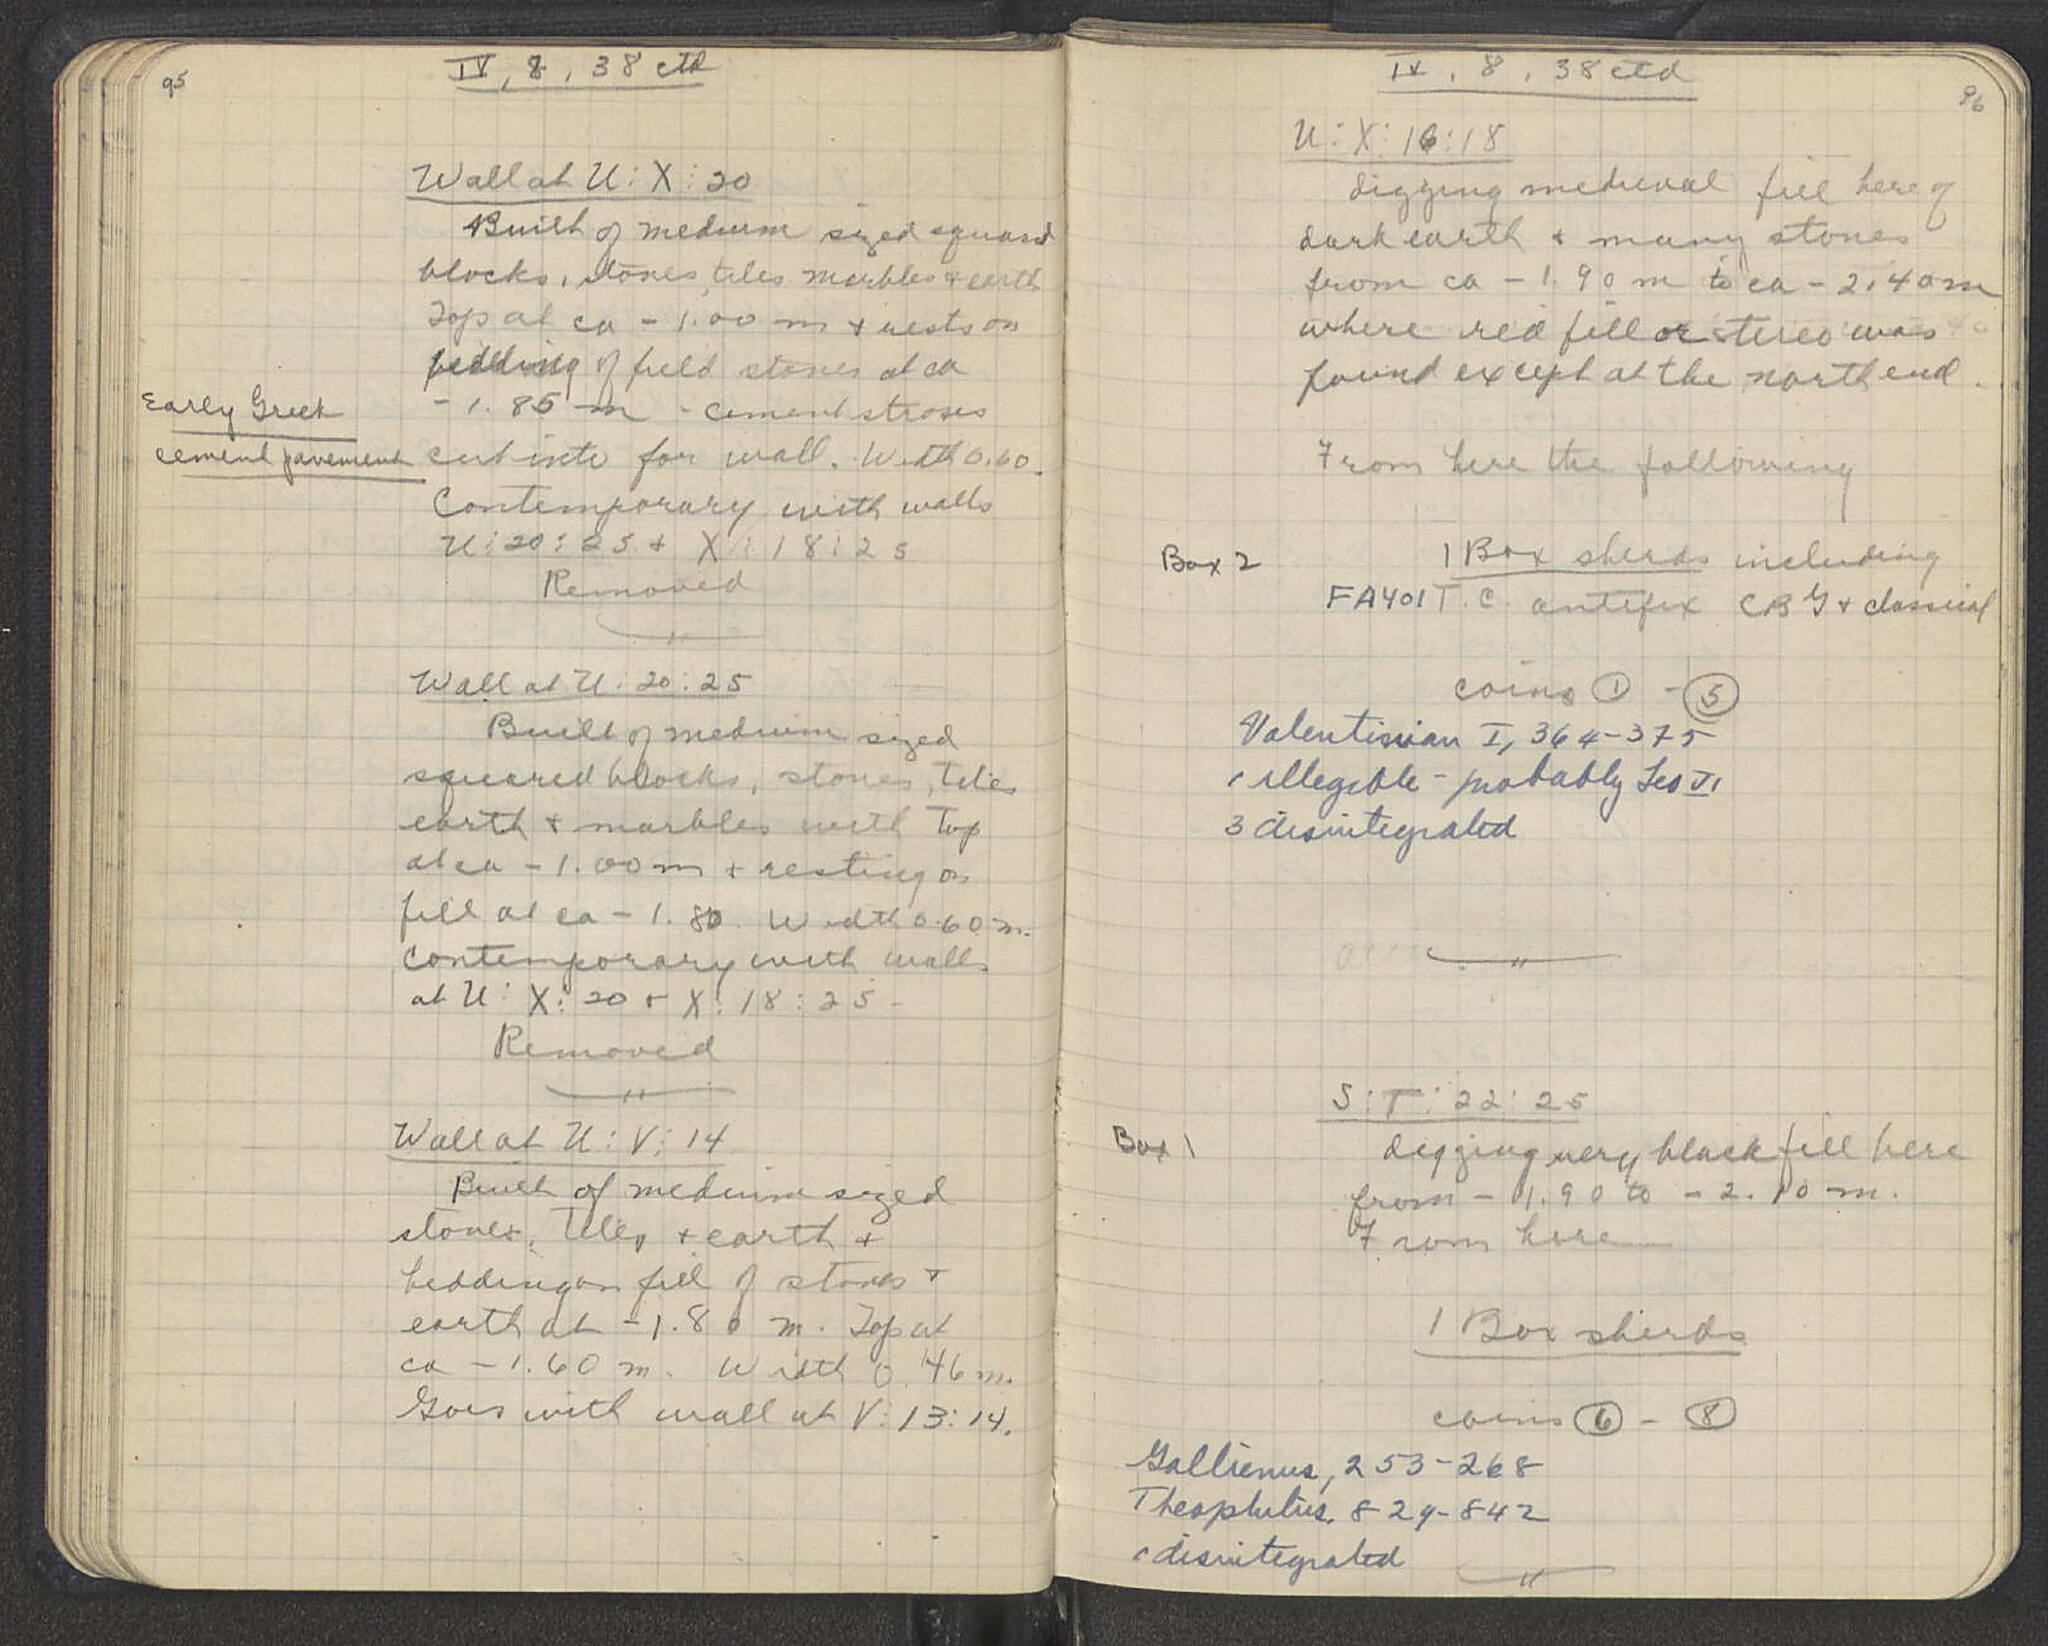 95
IV, 8, 38 ctd
Wall at U:X:20
Built of medium sized squared
blocks, stones, tiles marbles + earth
Top at ca - 1.00 m + rests on
bedding of field stones at ca
- 1.85 m - cement stroses
Early Greek
cement pavement
cut into for wall. Width 0.60.
Contemporary with walls
U:20:25 + X:18:25
Removed
"
Wall at U:20:25
Built of medium sized
squared blocks, stones, tiles
earth + marbles with Top
at ca - 1.00 m + resting on
fill at ca - 1.80. Width 0.60 m.
Contemporary with walls
at U:X:20 + X:18:25-
Removed
"
Wall at U:V:14
Built of medium sized
stones, Tiles + earth +
bedding on fill of stones +
earth at - 1.80 m. Top at
ca - 1.60 m. Width 0.46 m.
Goes with wall at V:13:14.
96
IV, 8, 38 ctd
U:X:16:18
digging medieval fill here of
dark earth + many stones
from ca - 1.90 m to ca - 2.40 m
where red fill or stereo was
found except at the north end.
From here the following
Box 2
1 Box sherds including
FA401 T.C. antefix CBG + classical
coins 1 - 5
Valentinian I, 364-375
1 illegible - probably Leo VI
3 disintegrated
"
S:T:22:25
Box 1
digging very black fill here
from - 1.90 to - 2.10 m.
From here
1 Box sherds
coins 6 - 8
Gallienus, 253-268
Theophilus, 829-842
1 disintegrated
"